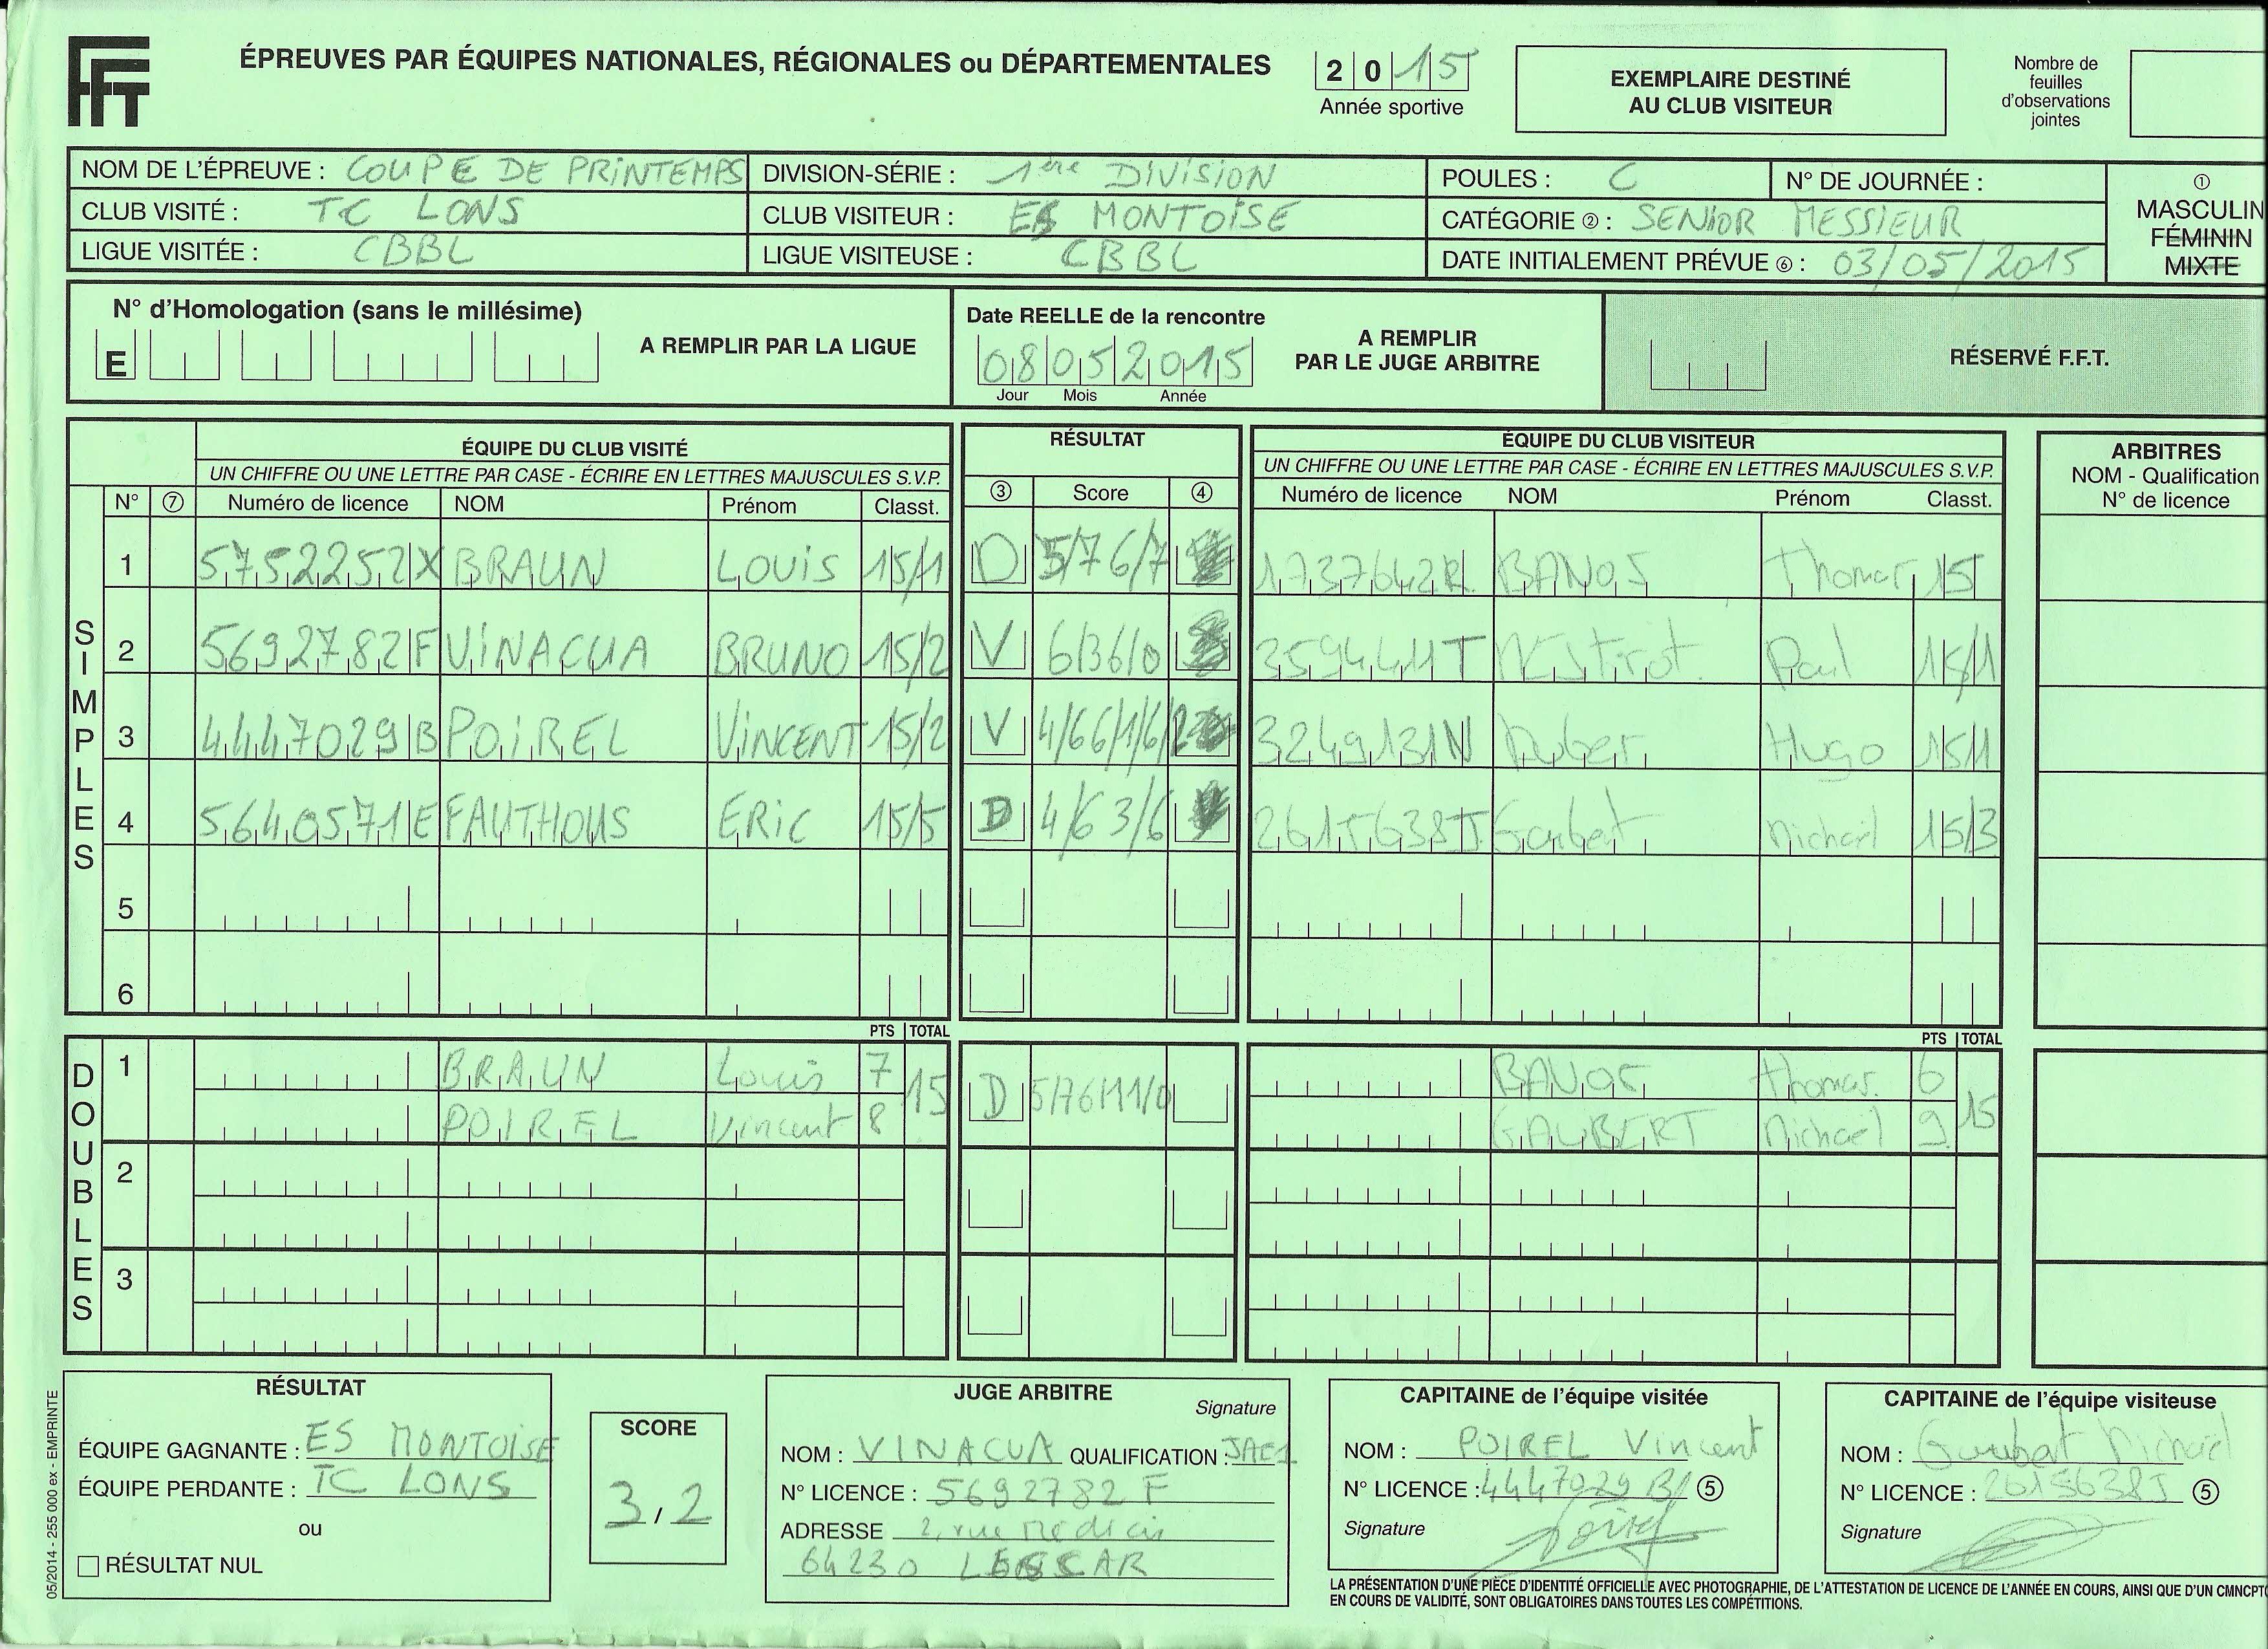 FFT
ÉPREUVES PAR ÉQUIPES NATIONALES, RÉGIONALES ou DÉPARTEMENTALES
2015
Année sportive
EXEMPLAIRE DESTINÉ
AU CLUB VISITEUR
Nombre de
feuilles
d'observations
jointes
NOM DE L'ÉPREUVE : COUPE DE PRINTEMPS
DIVISION-SÉRIE : 1ère DIVISION
POULES : C
N° DE JOURNÉE :
CLUB VISITÉ : TC LONS
CLUB VISITEUR : ES MONTOISE
CATÉGORIE ② : SENIOR MESSIEUR
LIGUE VISITÉE : CBBL
LIGUE VISITEUSE : CBBL
DATE INITIALEMENT PRÉVUE ⑥ : 03/05/2015
①
MASCULIN
FÉMININ
MIXTE
N° d'Homologation (sans le millésime)
E
A REMPLIR PAR LA LIGUE
Date REELLE de la rencontre
08052015
Jour Mois Année
A REMPLIR
PAR LE JUGE ARBITRE
RÉSERVÉ F.F.T.
ÉQUIPE DU CLUB VISITÉ
UN CHIFFRE OU UNE LETTRE PAR CASE - ÉCRIRE EN LETTRES MAJUSCULES S.V.P.
RÉSULTAT
ÉQUIPE DU CLUB VISITEUR
UN CHIFFRE OU UNE LETTRE PAR CASE - ÉCRIRE EN LETTRES MAJUSCULES S.V.P.
ARBITRES
NOM - Qualification
N° de licence
N° ⑦ Numéro de licence NOM Prénom Classt. ③ Score ④ Numéro de licence NOM Prénom Classt.
SIMPLES
1 5752252X BRAUN LOUIS 15/1 D 5/7 6/7 1737642R BANOS Thomas 15
2 5692782F VINACUA BRUNO 15/2 V 6/3 6/0 3594411T Paul 15/1
3 4447029B POIREL VINCENT 15/2 V 4/6 6/1 6/2 3249131N Hugo 15/1
4 5640571E FAUTHOUS ERIC 15/5 D 4/6 3/6 2615638J Gaubert Michaël 15/3
5
6
PTS TOTAL
PTS TOTAL
DOUBLES
1 BRAUN Louis 7 15 D 5/7 6/1 1/0 BANOS Thomas 6 15
POIREL Vincent 8 GAUBERT Michaël 9
2
3
RÉSULTAT
ÉQUIPE GAGNANTE : ES MONTOISE
ÉQUIPE PERDANTE : TC LONS
ou
RÉSULTAT NUL
SCORE
3/2
JUGE ARBITRE
Signature
NOM : VINACUA QUALIFICATION : JAE1
N° LICENCE : 5692782 F
ADRESSE 2, rue Médicis
64230 LESCAR
CAPITAINE de l'équipe visitée
NOM : POIREL Vincent
N° LICENCE : 4447029 B ⑤
Signature
CAPITAINE de l'équipe visiteuse
NOM : Gaubert Michaël
N° LICENCE : 2615638J ⑤
Signature
LA PRÉSENTATION D'UNE PIÈCE D'IDENTITÉ OFFICIELLE AVEC PHOTOGRAPHIE, DE L'ATTESTATION DE LICENCE DE L'ANNÉE EN COURS, AINSI QUE D'UN CMNCPT
EN COURS DE VALIDITÉ, SONT OBLIGATOIRES DANS TOUTES LES COMPÉTITIONS.
05/2014 - 255 000 ex - EMPRINTE